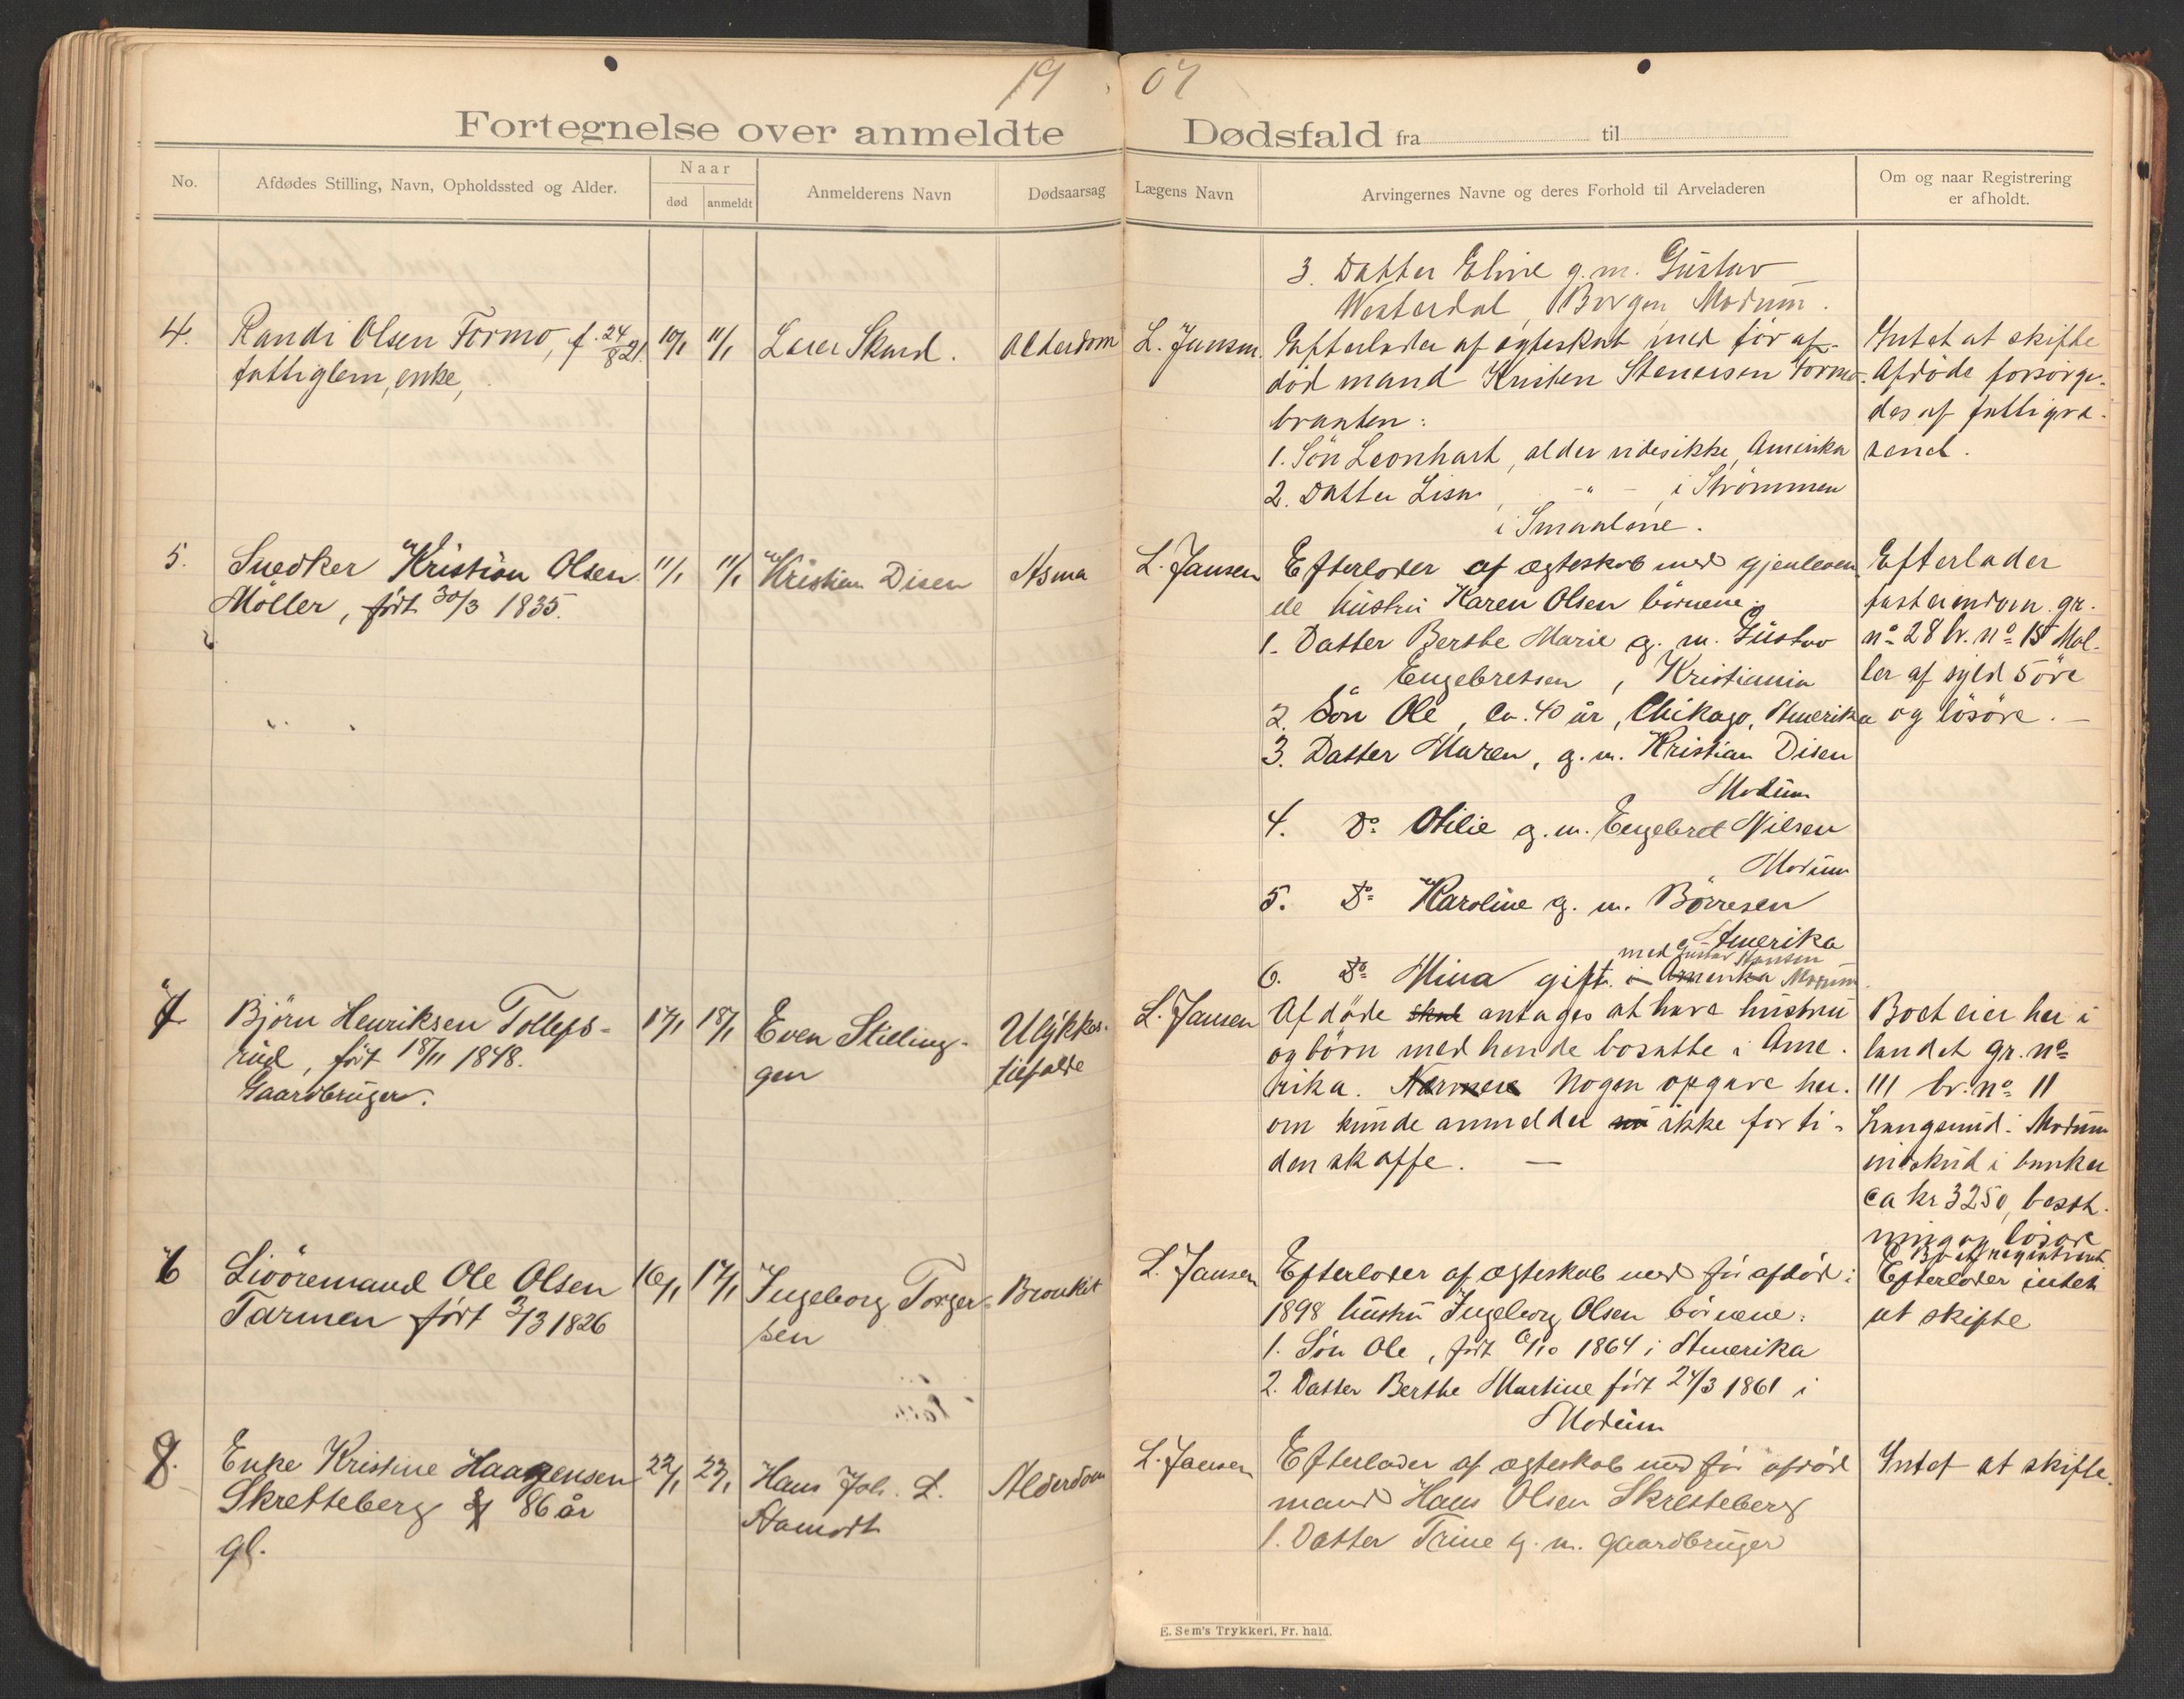 19 07
Fortegnelse over anmeldte Dødsfald fra til
No.
Afdødes Stilling, Navn, Opholdssted og Alder.
Naar
død
anmeldt
Anmelderens Navn
Dødsaarsag
Lægens Navn
Arvingernes Navne og deres Forhold til Arveladeren
Om og naar Registrering
er afholdt.
3. Datter Eline g. m. Gustav
Westerdal, Borgen, Modum.
4.
Randi Olsen Formo, f. 24/8 21.
fattiglem, enke,
10/1
11/1
Skard.
Alderdom
L. Jansen.
Efterlader af egteskab med før af-
død mand Kristen Stenersen Formo-
braaten:
1. Søn Leonhart, alder vides ikke, Amerika
2. Datter Lisa, - " - i Strømmen
i Smaalene.
Intet at skifte
Afdøde forsørge-
des af fattigvæ-
senet.
5.
Snedker Kristian Olsen
Möller, født 30/3 1835.
11/1
11/1
Kristian Disen
Asma
L. Jansen
Efterlader af ægteskab med gjenleven
de hustru Karen Olsen børnene:
1. Datter Berthe Marie g. m. Gustav
Engebretsen, Kristiania
2. Søn Ole, ca. 40 år, Chikago, Amerika
3. Datter Maren, g. m. Kristian Disen
Modum
4. Do Otilie g. m. Engebret Nilsen
Modum
5. Do Karoline g. m. Börresen
Amerika
med Gustav Hansen
6. Do Mina gift. i Amerika Modum.
Efterlader
fast eiendom gr.
no 28 br. no 15 Möl-
ler af skyld 5 øre
og løsøre. —
7
Björn Henriksen Tollefs-
rud, født 18/11 1848.
Gaardbruger.
17/1
18/1
Even Stilling-
gen
Ulykkes-
tilfælde
L. Jansen
Afdøde skal antages at have hustru
og børn med hende bosatte i Ame-
rika. Nærmere Nogen opgave her-
om kunde anmelder nu ikke for ti-
den skaffe. —
Boet eier her i
landet gr. no
111 br. no 11
Langerud i Modum
indskud i banker
ca kr 3250, besæt-
ning og løsøre
Boet registreret.
6
Livøremand Ole Olsen
Tarmen født 3/3 1826
16/1
17/1
Ingeborg Torger-
sen
Bronkit
L. Jansen
Efterlader af ægteskab med før afdød i
1898 hustru Ingeborg Olsen børnene:
1. Søn Ole, født 6/10 1864 i Amerika
2. Datter Berthe Martine født 24/3 1861 i
Modum
Efterlader intet
at skifte
8.
Enke Kristine Haagensen
Skretteberg 86 år
gl.
22/1
23/1
Hans Joh. L.
Aamodt
Alderdom
L. Jansen
Efterlader af ægteskab med før afdød
mand Hans Olsen Skretteberg
1. Datter Trine g. m. gaardbruger
Intet at skifte.
E. Sem's Trykkeri, Fr. hald.